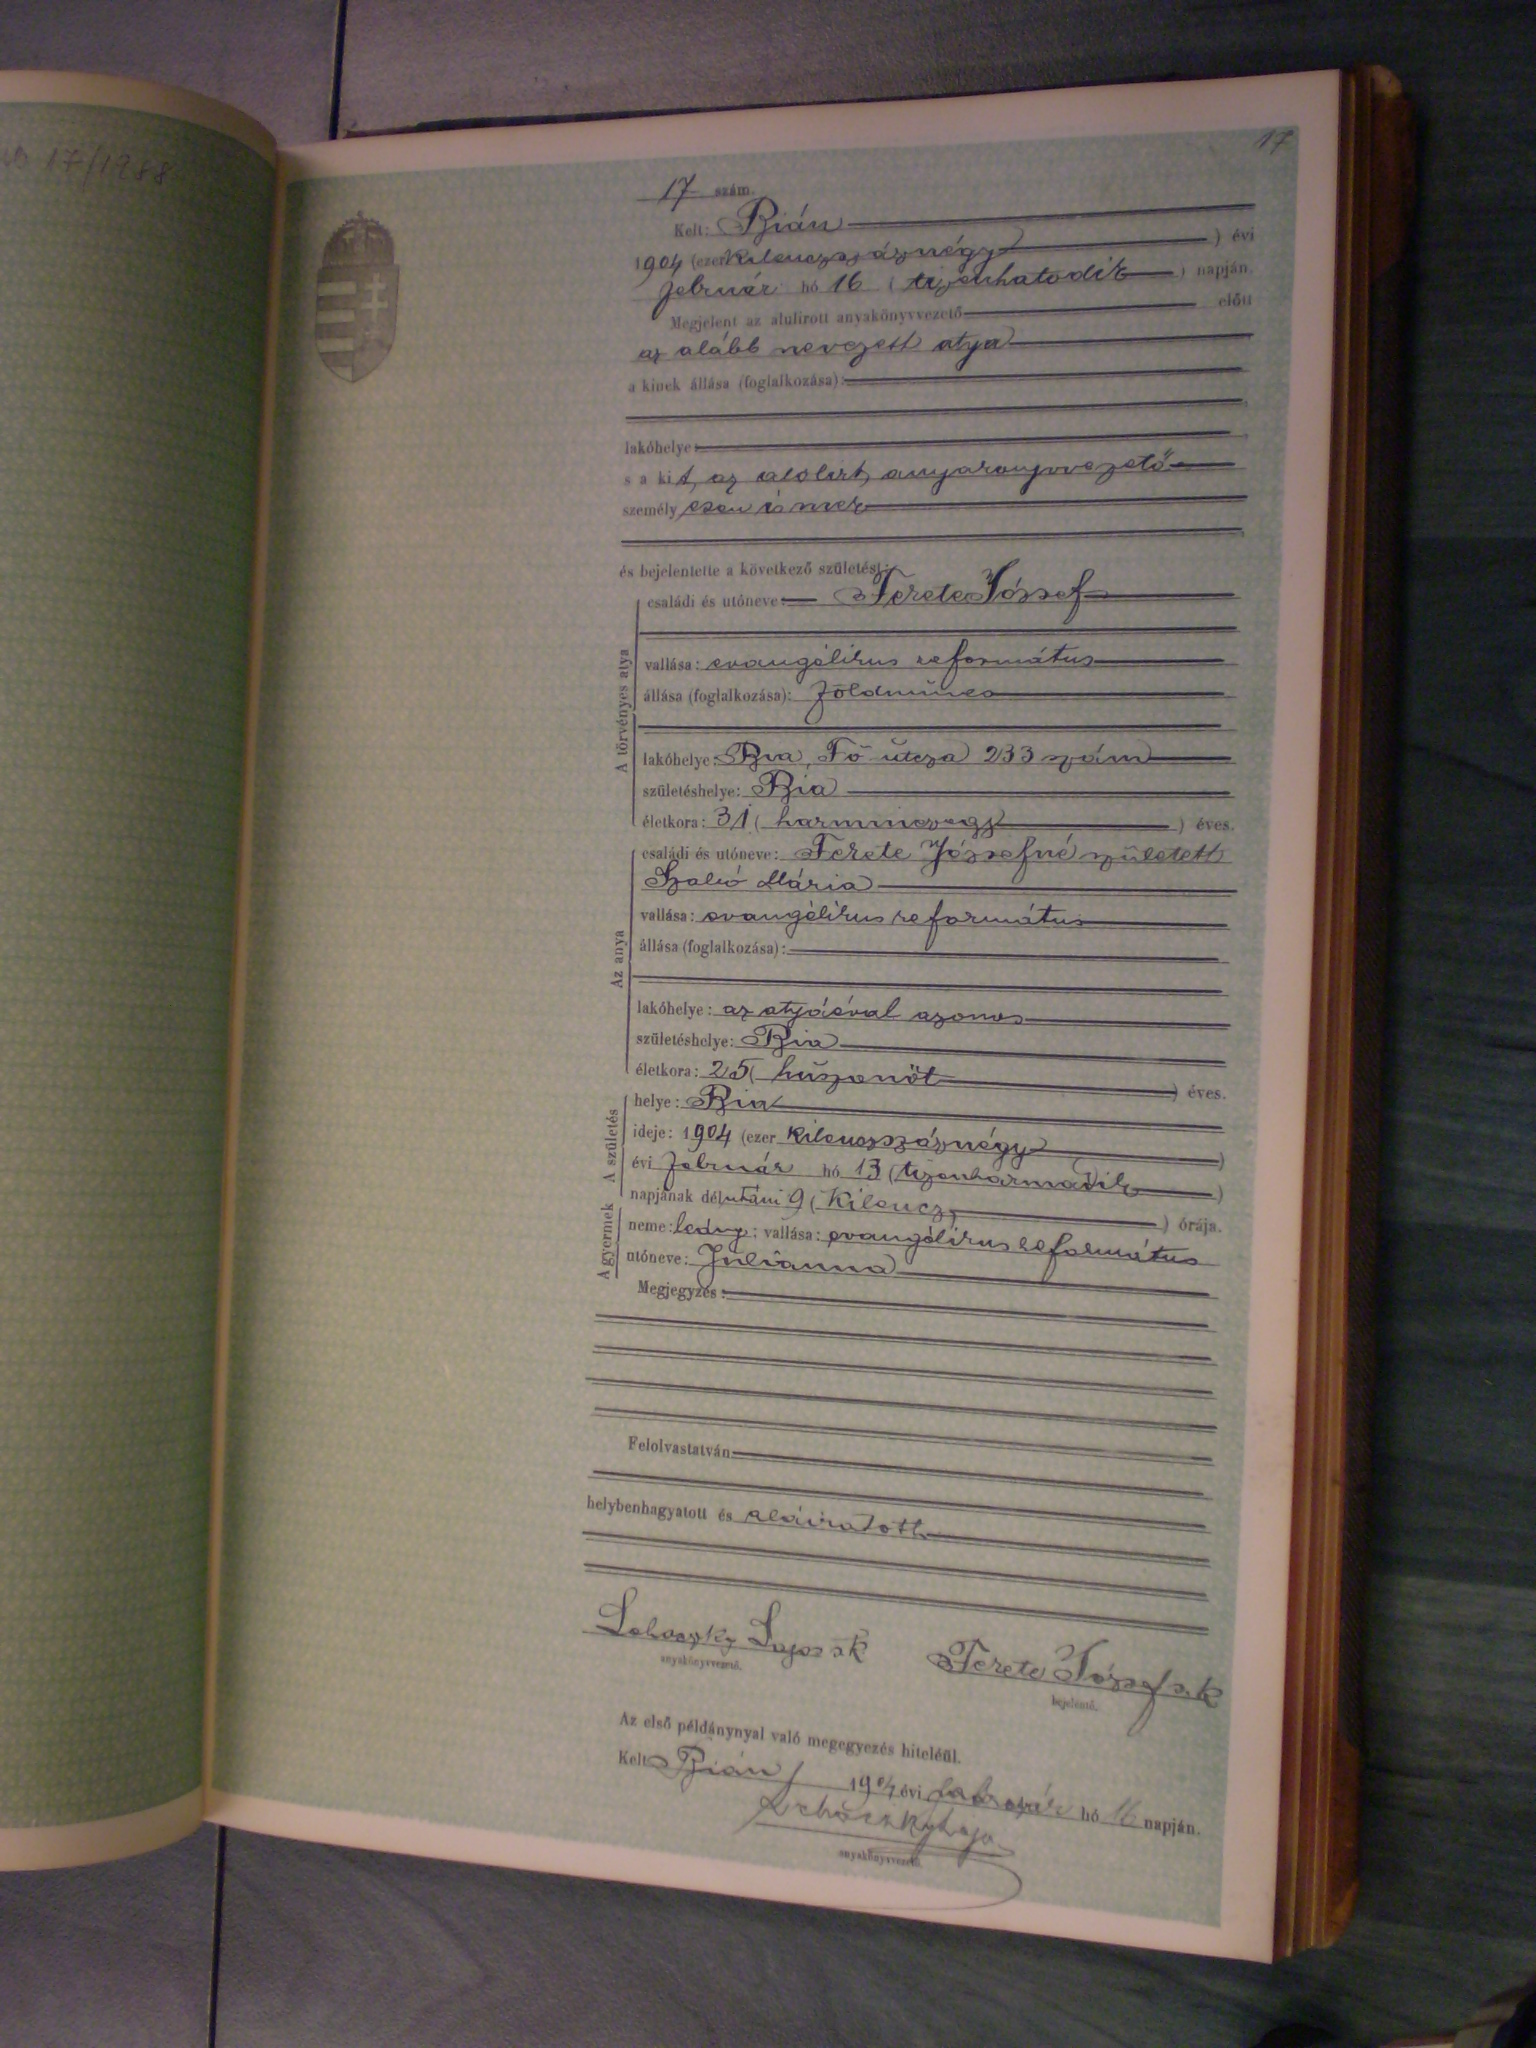 17/1988
17
17 szám.
Kelt: Bián
1904 (ezer kilenczszáznégy) évi
február hó 16 (tizenhatodik) napján.
Megjelent az alulirott anyakönyvvezető előtt
az alább nevezett atya
a kinek állása (foglalkozása):
lakóhelye:
s a kit, az alólirt anyakönyvvezető
személyesen ismer
és bejelentette a következő születést:
A törvényes atya
családi és utóneve: Fekete József
vallása: evangélikus református
állása (foglalkozása): földműves
lakóhelye: Bia, Fő utcza 233 szám
születéshelye: Bia
életkora: 31 (harminczegy) éves.
Az anya
családi és utóneve: Fekete Józsefné született
Szabó Mária
vallása: evangélikus református
állása (foglalkozása):
lakóhelye: az atyáéval azonos
születéshelye: Bia
életkora: 25 (huszonöt) éves.
A születés
helye: Bia
ideje: 1904 (ezer kilenczszáznégy)
évi február hó 13 (tizenharmadik)
napjának délutáni 9 (kilencz) órája.
A gyermek
neme: leány; vallása: evangélikus református
utóneve: Julianna
Megjegyzés:
Felolvastatván
helybenhagyatott és aláiratott
Lajos sk Fekete József s. k
anyakönyvvezető. bejelentő.
Az első példánynyal való megegyezés hiteléül.
Kelt Bián, 1904 évi február hó 16 napján.
anyakönyvvezető.